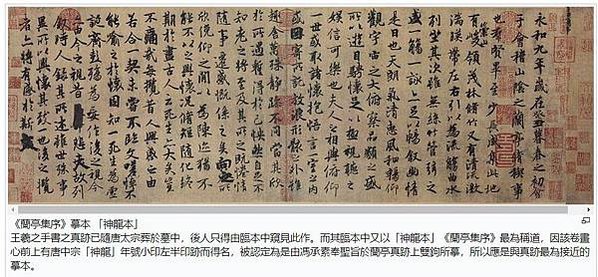 永和九年歲在癸丑暮春之初會
于會稽山陰之蘭亭脩稧事
也羣賢畢至少長咸集此地
有崇山峻領茂林脩竹又有清流激
湍暎帶左右引以為流觴曲水
列坐其次雖無絲竹管弦之
盛一觴一詠亦足以暢敘幽情
是日也天朗氣清惠風和暢仰
觀宇宙之大俯察品類之盛
所以遊目騁懷足以極視聽之
娛信可樂也夫人之相與俯仰
一世或取諸懷抱悟言一室之內
或因寄所託放浪形骸之外雖
趣舍萬殊靜躁不同當其欣
於所遇蹔得於己怏然自足不
知老之將至及其所之既惓情
隨事遷感慨係之矣向之所
欣俛仰之閒以為陳迹猶不
能不以之興懷況脩短隨化終
期於盡古人云死生亦大矣豈
不痛哉每攬昔人興感之由
若合一契未嘗不臨文嗟悼不
能喻之於懷固知一死生為虛
誕齊彭殤為妄作後之視今
亦由今之視昔悲夫故列
敘時人錄其所述雖世殊事
異所以興懷其致一也後之攬
者亦將有感於斯文
《蘭亭集序》摹本 「神龍本」
王羲之手書之真跡已隨唐太宗葬於墓中，後人只得由臨本中窺見此作。而其臨本中又以「神龍本」《蘭亭集序》最為稱道，因該卷畫
心前上有唐中宗「神龍」年號小印左半印跡而得名，被認定為是由馮承素奉聖旨於蘭亭真跡上雙鉤所摹，所以應是與真跡最為接近的
摹本。